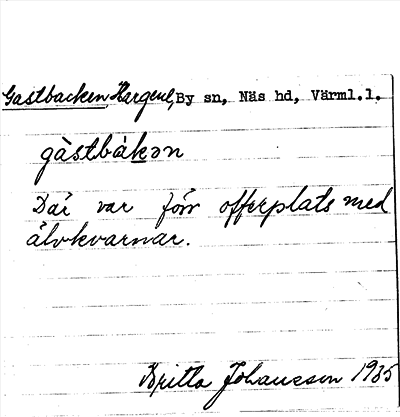 Gastbacken Hargene, By sn, Näs hd, Värml.l.
gàstbàkən
Där var förr offerplats med
älvkvarnar.
Britta Johansson 1935